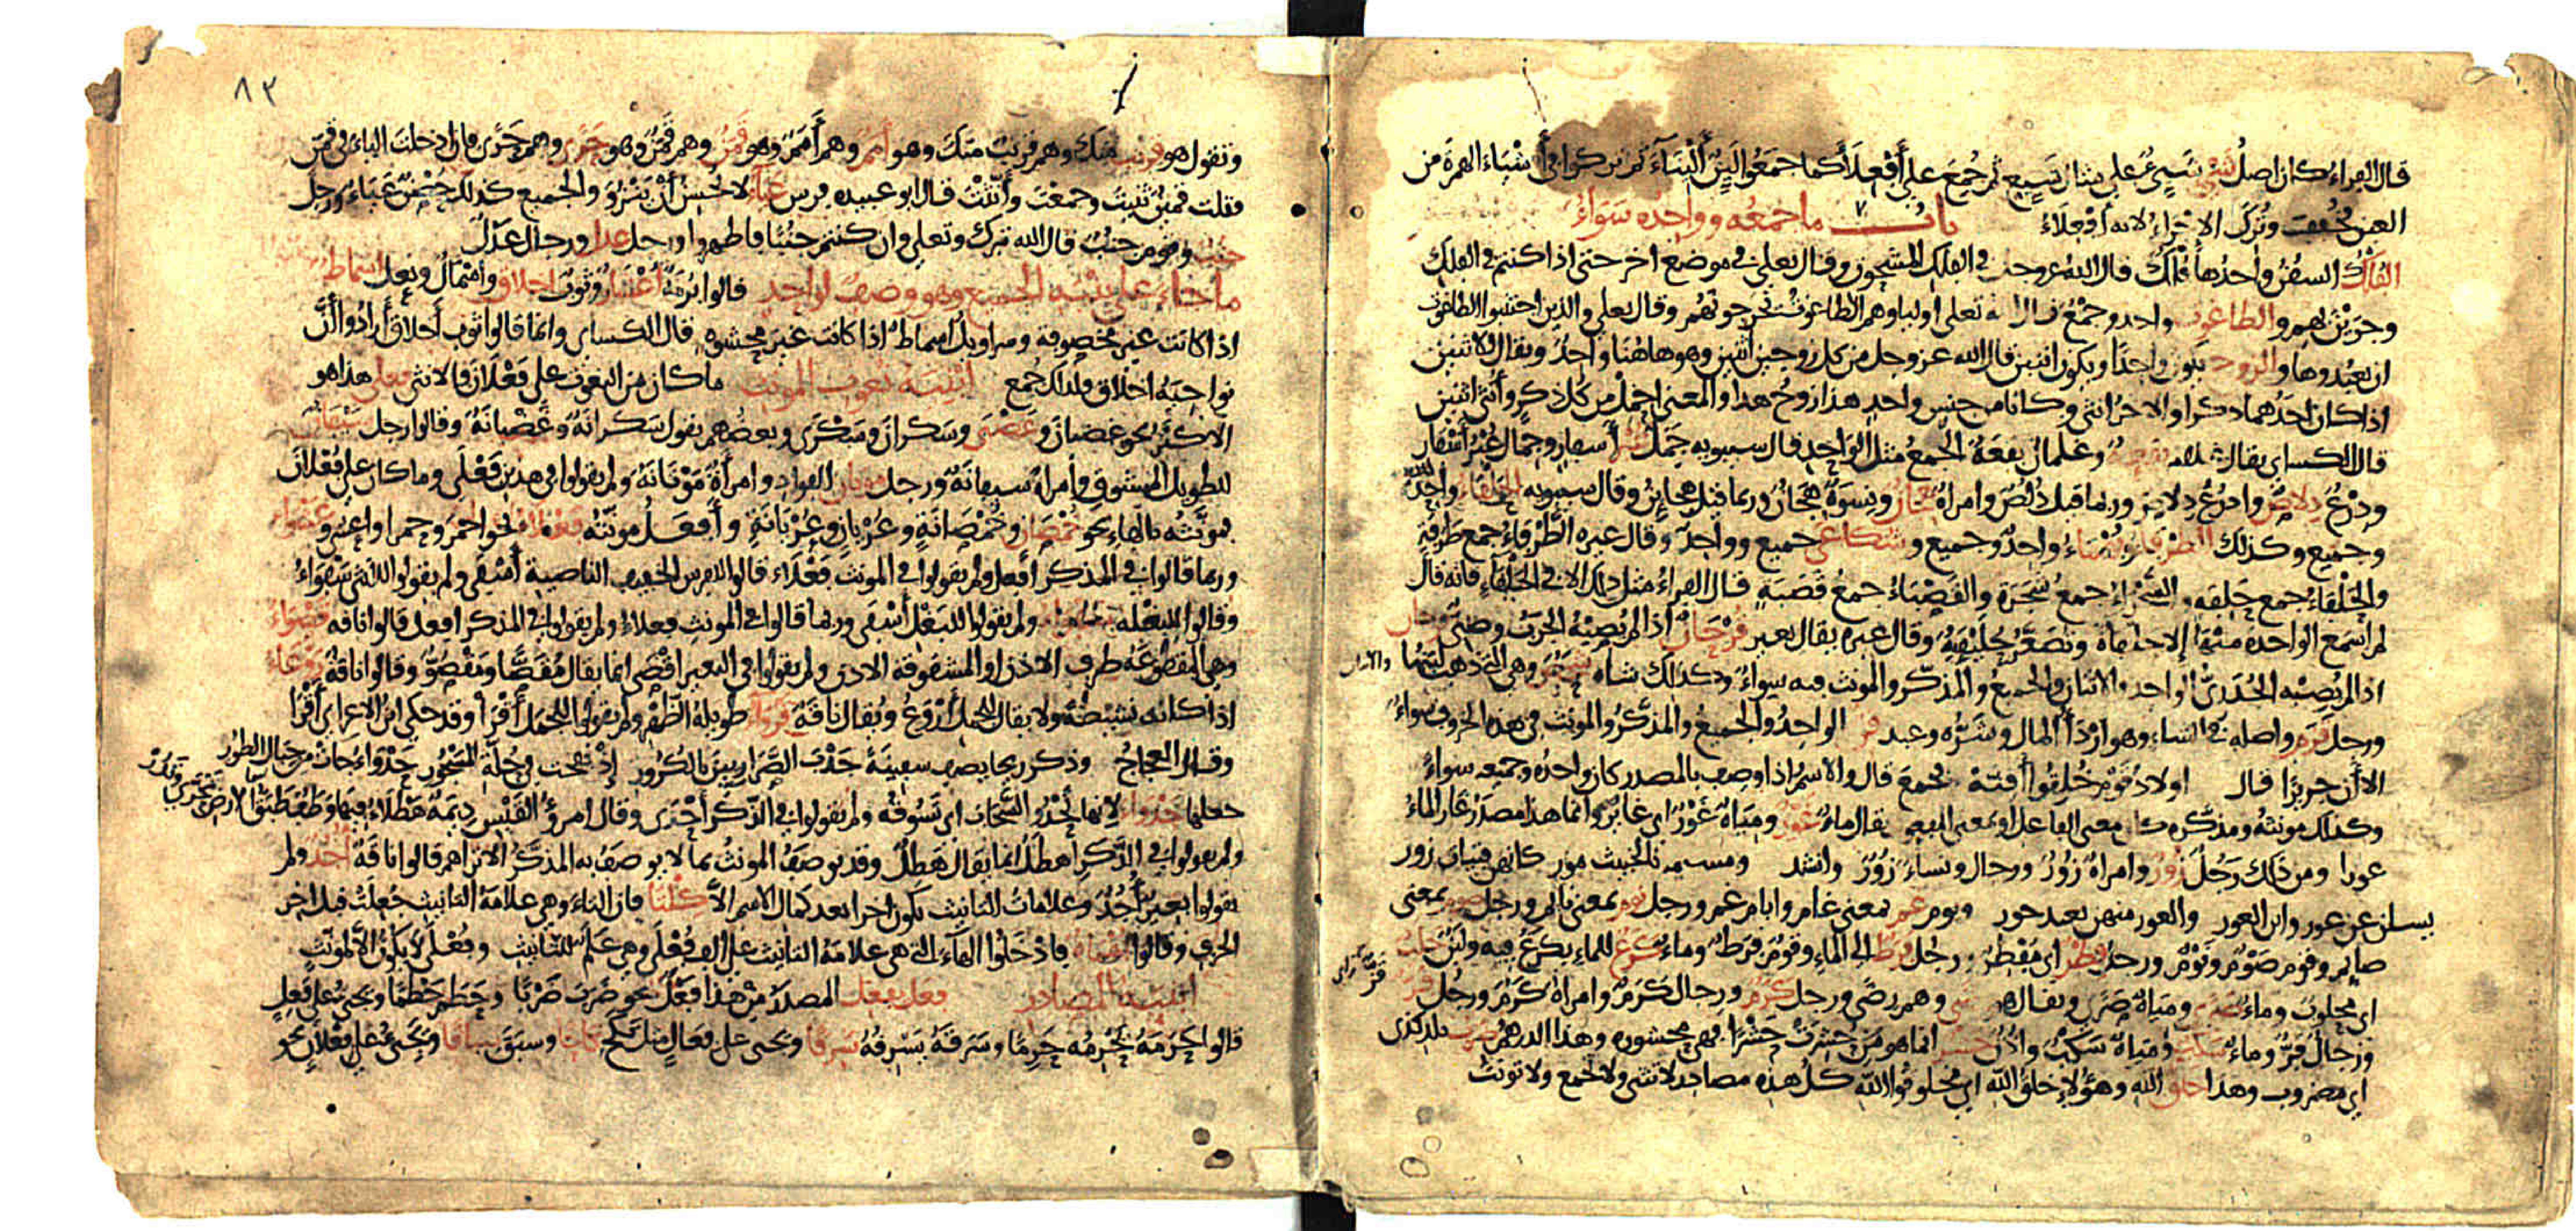 قال الفراء كان اصل شَيْءٍ شَيِّئٌ على مثال شَيِّعٍ ثم جُمِعَ على أَفْعِلَاءَ كما جمعوا لَيِّنٌ أَلْيِنَاءَ ثم تركوا في أشياء الهمزة من
العين فخففت وتُرِكَ الاجراء لانه أفعلاء باب ما جمعه وواحده سواء
الفُلْك السفن وواحدها فُلْكٌ قال الله عز وجل في الفلك المشحون وقال تعلى في موضع اخر حتى اذا كنتم في الفلك
وجرين بهم والطاغوت واحد وجمع قال الله تعلى اولياؤهم الطاغوت يخرجونهم وقال تعلى والذين اجتنبوا الطاغوت
ان يعبدوها والزوج يكون واحدا ويكون اثنين قال الله عز وجل من كل زوجين اثنين وهو هاهنا واحد ويقال للاثنين
اذا كان احدهما ذكرا والاخر انثى وكانا من جنس واحد هذا زوج هذا والمعنى احمل من كل ذكر وأنثى اثنين
قال الكسائي يقال غلام يفعة وغلمان يفعة الجمع مثل الواحد قال سيبويه جمل عبر أسفار وجمال عُبْرُ أسفار
ودرع دلاص وادرع دلاص وربما قيل دُلُصٌ وامراة هجان ونسوة هجان وربما قيل هجاين وقال سيبويه الحلفاء واحد
وجميع وكذلك الطرفاء وبهماء واحد وجميع وشكاعى جميع وواحد وقال غيره الطرفاء جمع طرفة
والحلفاء جمع حلفة والشجراء جمع شجرة والقصباء جمع قصبة قال الفراء مثل ذلك الا في الحلفاء فانه قال
لم اسمع الواحدة منها إلا حلفاة وتصغر حُلَيْفِيَة وقال غيره يقال بعير قرحان اذا لم يصبه الجرب وصبي قرحان
اذا لم يصبه الجدري الواحد والاثنان والجميع والمذكر والمونث فيه سواء وكذلك شاة شحص وهي التي ذهب لبنها
ورجل قزم واصله في الشاء وهو اردأ المال وشره وعبد قن الواحد والجميع والمذكر والمونث في هذه الحروف سواء
الا أن جريرا قال اولاد قوم خلقوا أقنة فجمع قال والاسم اذا وصف بالمصدر كان واحده وجميعه سواء
وكذلك مونثه ومذكره كان معنى الفاعل او بمعنى المفعول يقال ماء غور ومياه غور اي غاير وانما هذا مصدر غار الماء
غورا ومن ذلك رجل زور وامراة زور ورجال ونساء زور وانشد كانهن فتيات زور
يسلن عن غور وابن الغور والغور منهن بعيد جور ويوم غم بمعنى غام وايام غم ورجل نوم بمعنى نايم ورجل صوم بمعنى
صايم وقوم صوم ونوم ورجل فطر اي مفطر ورجل فرط الى الماء وقوم فرط وماء كرع للماء يكرع فيه ولبن حلب
اي محلوب وماء صرى ومياه صرى ويقال هو رضى وهم رضى ورجل كرم ورجال كرم وامراة كرم ورجل قر
ورجال قر وماء سكب ومياه سكب واذن حشر انما هو من حشرت حشرا فهي محشورة وهذا الدرهم ضرب بلد كذى
اي مضروب وهذا خلق الله وهؤلاء خلق الله اي مخلوقوا الله كل هذه مصادر لا تثنى ولا تجمع ولا تونث
٨٣
وتقول هو قريب منك وهم قريب منك وهو أمم وهم أمم وهو قمن وهم قمن وهو حرى وهم حرى فان ادخلت الياء في قمن
فقلت قمين ثنيت وجمعت وأنثت قال ابو عبيدة فرس عياء لا يحسن أن ينزو والجميع كذلك ورجل
جنب وقوم جنب قال الله تبرك وتعلى وان كنتم جنبا فاطهروا ورجل عدل ورجال عدل
ما جاء على بنية الجميع وهو وصف لواحد قالوا برمة أعشار وثوب اخلاق واسمال ونعل اسماط
اذا كانت غير مخصوفة وسراويل اسماط اذا كانت غير محشوة قال الكسائي وانما قالوا ثوب أخلاق أرادوا أن
نواحيه اخلاق فلذلك جمع أبنية نعوت المونث ما كان من النعوت على فعلان فالانثى فعلى هذا هو
الاكثر نحو غضبان وغضبى وسكران وسكرى وبعضهم يقول سكرانة وغضبانة وقالوا رجل سيفان
للطويل الممشوق وامراة سيفانة ورجل موتان الفواد وامراة موتانة ولم يقولوا في هذين فعلى وما كان على فعلان
مونثه بالهاء نحو خمصان وخمصانة وعريان وعريانة وأفعل مونثه فعلاء نحو احمر وحمرا واعشى وعشواء
وربما قالوا في المذكر افعل ولم يقولوا في المونث فعلاء قالوا للفرس الخفيف الناصية أسفى ولم يقولوا للانثى سفواء
وقالوا للبغلة سفواء ولم يقولوا للبغل أسفى وربما قالوا في المونث فعلاء ولم يقولوا في المذكر افعل قالوا ناقة قصواء
وهي المقطوعة طرف الاذن او المشقوقة الاذن ولم يقولوا في البعير اقصى انما يقال مقصا ومقصو وقالوا ناقة روعاء
اذا كانت نشيطة ولا يقال للجمل أروع ويقال ناقة قرواء طويلة الظهر ولم يقولوا للجمل أقرا وقد حكى ابن الاعرابي أقرا
وقال العجاج وذكر ريحا يصف سفينة جذب الصراريين بالكرور إذ نفحت من جلة المسحور حدواء جات من جبال الطور
جعلها حدواء لانها تحدو السحاب اي تسوقه ولم يقولوا في الذكر أحدى وقال امرؤ القيس ديمة هطلاء فيها وطف طبق الارض تحرى وتدر
ولم يقولوا في الذكر اهطل انما يقال هطل وقد يوصف المونث بما لا يوصف به المذكر الا تراهم قالوا ناقة أجد ولم
يقولوا بعير أجد وعلامات التانيث تكون اخرا بعد كمال الاسم الا كلتا فان التاء وهي علامة التانيث جعلت قبل اخر
الحرف وقالوا بهماة فادخلوا الهاء التي هي علامة التانيث على الف فعلى وهي علم للتانيث وفعلى لا يكون الا لمونث
أبنية المصادر فعل يفعل المصدر من هذا فعل نحو ضرب ضربا وحطم حطما ويجئ على فعل
قالوا حرمه يحرمه حرما وسرقه يسرقه سرقا ويجى على فعال مثل نكح نكاحا وسبق سباقا ويجئ على فعلان نحو